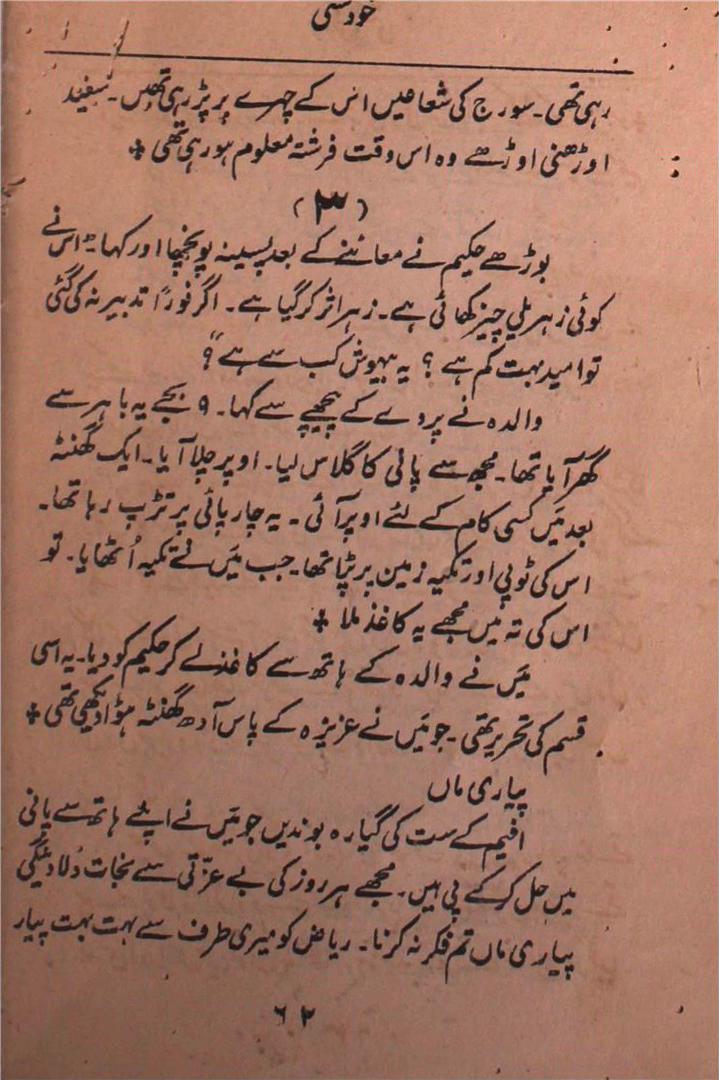 خودکشی
رہی تھی۔ سورج کی شعاعیں اس کے چہرے پر پڑ رہی تھیں۔ سفید
اوڑھنی اوڑھے وہ اس وقت فرشتہ معلوم ہو رہی تھی *
(۳)
بوڑھے حکیم نے معائنے کے بعد پسینہ پونچھا اور کہا۔ "اس نے
کوئی زہریلی چیز کھائی ہے۔ زہر اثر کر گیا ہے۔ اگر فوراً تدبیر نہ کی گئی
تو امید بہت کم ہے ؟ یہ بیہوش کب سے ہے"؟
والدہ نے پردے کے پیچھے سے کہا۔ ۹ بجے یہ باہر سے
گھر آیا تھا۔ مجھ سے پانی کا گلاس لیا۔ اوپر چلا آیا۔ ایک گھنٹہ
بعد میں کسی کام کے لئے اوپر آئی۔ یہ چارپائی پر تڑپ رہا تھا۔
اس کی ٹوپی اور تکیہ زمین پر پڑا تھا۔ جب میں نے تکیہ اُٹھایا۔ تو
اس کی تہ میں مجھے یہ کاغذ ملا *
میں نے والدہ کے ہاتھ سے کاغذ لے کر حکیم کو دیا۔ یہ اسی
قسم کی تحریر تھی۔ جو میں نے عزیزہ کے پاس آدھ گھنٹہ ہؤا دیکھی تھی *
پیاری ماں
افیم کے ست کی گیارہ بوندیں جو میں نے اپنے ہاتھ سے پانی
میں حل کر کے پی ہیں۔ مجھے ہر روز کی بے عزّتی سے نجات دُلا دینگی
پیاری ماں تم فکر نہ کرنا۔ ریاض کو میری طرف سے بہت بہت پیار
۶۲